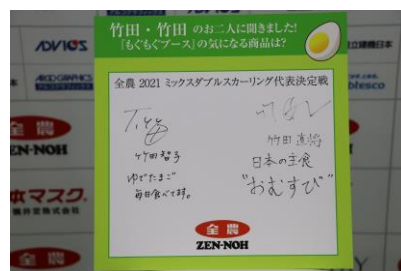 竹田・竹田 のお二人に聞きました!
「もぐもぐブース」の気になる商品は?
全農 2021 ミックスダブルスカーリング代表決定戦
竹田智子
ゆでたまご
毎日食べてます。
竹田直将
日本の主食
"おむすび"
全農
ZEN-NOH
ADVICS
AIKO GRAPHICS
全農
EN-NOH
本マスク。
横井定株式会社
全農
立建機日本
blesco